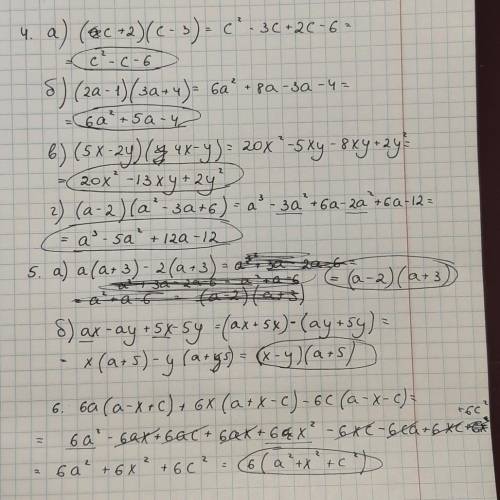 4. а) (c+2)(c-3) = c² - 3c + 2c - 6 =
= c² - c - 6
б) (2a-1)(3a+4) = 6a² + 8a - 3a - 4 =
= 6a² + 5a - 4
в) (5x-2y)(4x-y) = 20x² - 5xy - 8xy + 2y² =
= 20x² - 13xy + 2y²
г) (a-2)(a² - 3a + 6) = a³ - 3a² + 6a - 2a² + 6a - 12 =
= a³ - 5a² + 12a - 12
5. а) a(a+3) - 2(a+3) = a² + 3a - 2a - 6 = = (a-2)(a+3)
a² + 3a - 2a - 6 = a² + a - 6
= a² + a - 6 = (a-2)(a+3)
б) ax - ay + 5x - 5y = (ax+5x) - (ay+5y) =
- x(a+5) - y(a+5) = (x-y)(a+5)
6. 6a(a-x+c) + 6x(a+x-c) - 6c(a-x-c) =
+6c²
= 6a² - 6ax + 6ac + 6ax + 6x² - 6xc - 6ca + 6xc
= 6a² + 6x² + 6c² = 6(a² + x² + c²)